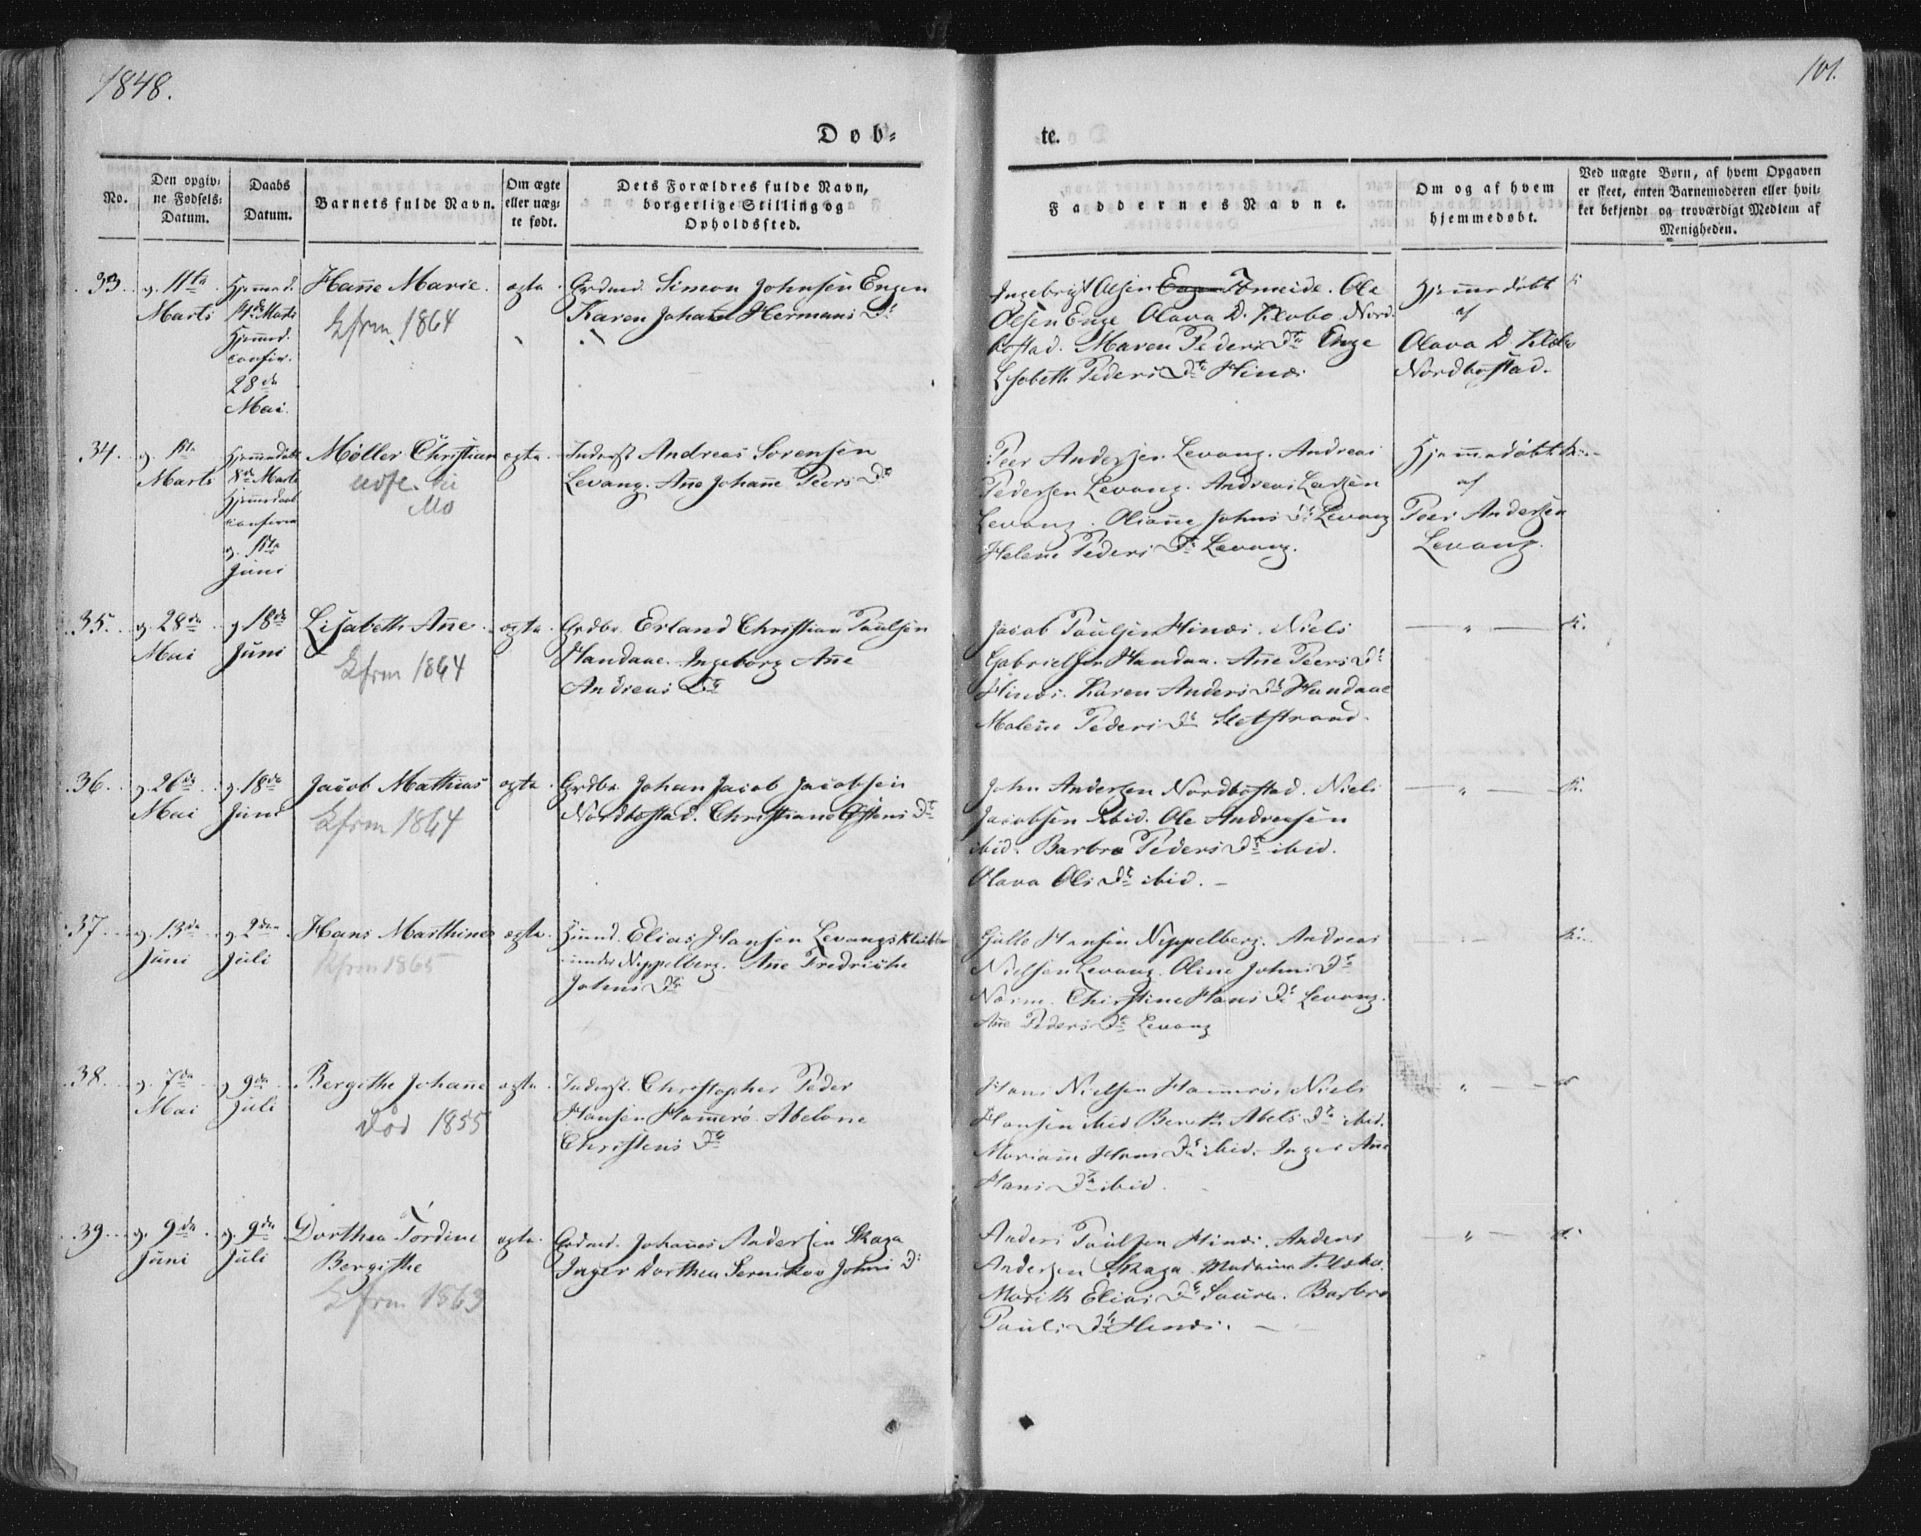 1848.
101.
Døb=
te.
No.
Den opgiv=
ne Fødsels=
Datum.
Daabs
Datum.
Barnets fulde Navn.
Om ægte
eller uæg=
te født.
Dets Forældres fulde Navn,
borgerlige Stilling og
Opholdssted.
Faddernes Navne.
Om og af hvem
hjemmedøbt.
Ved uægte Børn, af hvem Opgaven
er skeet, enten Barnemoderen eller hvil=
ket bekjendt og troværdigt Medlem af
Menigheden.
33.
11te
Marts
Hjemmed.
14de Marts
Hjemmed.
confir.
28de
Mai.
Hañe Marie.
Kfrm. 1864
ægte
Grdmd. Simon Johnsen Engen
Karen Johañe Hermans Dr
Ingebrigt Olsen Tømeide. Ole
Olsen Enge Olava D. Klæbo Nord=
bostad. Maren Peders Dtr Enge
Lisabeth Peders Dtr Hinæs
Hjemmedøbt
af
Olava D. Klæbo
Nordbostad.
34.
Marts
Hjemmedøbt
8de Marts
Hjemmedaab
confirm
Juni
Møller Christian
udfl. til
Mo
ægte.
Inderst Andreas Sørensen
Levang. Añe Johañe Peers Dtr
Peer Andersen Levang. Andreas
Pedersen Levang. Andreas Larsen
Levang. Oliañe Johns Dtr Levang
Helene Peders Dtr Levang.
Hjemmedøbt
af
Peer Andersen
Levang.
35.
28de
Mai
18de
Juni
Lisabeth Añe
Kfrm 1864
ægte
Grdbr. Erland Christian Paulsen
Handaae. Ingeborg Añe
Andreas Dtr
Jacob Paulsen Hinæs. Niels
Gabrielsen Handaa. Añe Peers Dr
Hinæs. Karen Anders Dtr Handaae
Malene Peders Dtr Sletstrand.
36.
26de
Mai
18de
Juni
Jacob Mathias
Kfrm 1864
ægte
Grdbr. Johan Jacob Jacobsen
Nordbostad. Christiane Østens Dtr
John Andersen Nordbostad. Niels
Jacobsen ibid. Ole Andreasen
ibid. Barbro Peders Dtr ibid.
Olava Ols Dtr ibid.
37
13de
Juni
2den
Juli
Hans Marthines
Kfrm 1865
ægte.
Huusmd. Elias Hansen Levangskleiva
under Nippelberg. Añe Fredrikke
Johns Dtr
Hansen Nippelberg. Andreas
Nielsen Levang. Oline Johns Dtr
Christine Hans Dtr Levang.
Añe Peders Dtr Levang
38.
7de
Mai
9de
Juli
Bergithe Johañe
Død 1855
ægte
Inderst. Christopher Peder
Hansen Hamerø. Abelone
Christens Dtr
Hans Nielsen Hamerø, Niels
Hansen ibid Bereth Abels Dtr ibid.
Mariañe Hans Dtr ibid. Inger Añe
Hans Dtr ibid.
39.
9de
Juni
9de
Juli
Dorthea Tordine
Bergithe
Kfrm 1863
ægte.
Grdmd. Johañes Andersen Skaga
Inger Dorthea Johns D:
Anders Paulsen Hinæs. Anders
Andersen Skaga. Madame Klæbo.
Marith Elias Dtr Saura. Barbro
Pauls Dtr Hinæs.